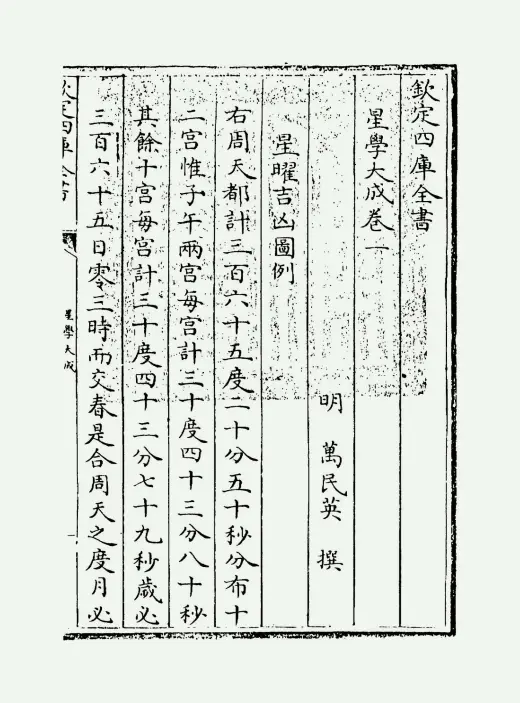 欽定四庫全書
星學大成卷一
明 萬民英 撰
星曜吉凶圖例
右周天都計三百六十五度二十分五十秒分布十
二宮惟子午兩宮每宮計三十度四十三分八十秒
其餘十宮每宮計三十度四十三分七十九秒歲必
三百六十五日零三時而交春是合周天之度月必
欽定四庫全書
星學大成
一